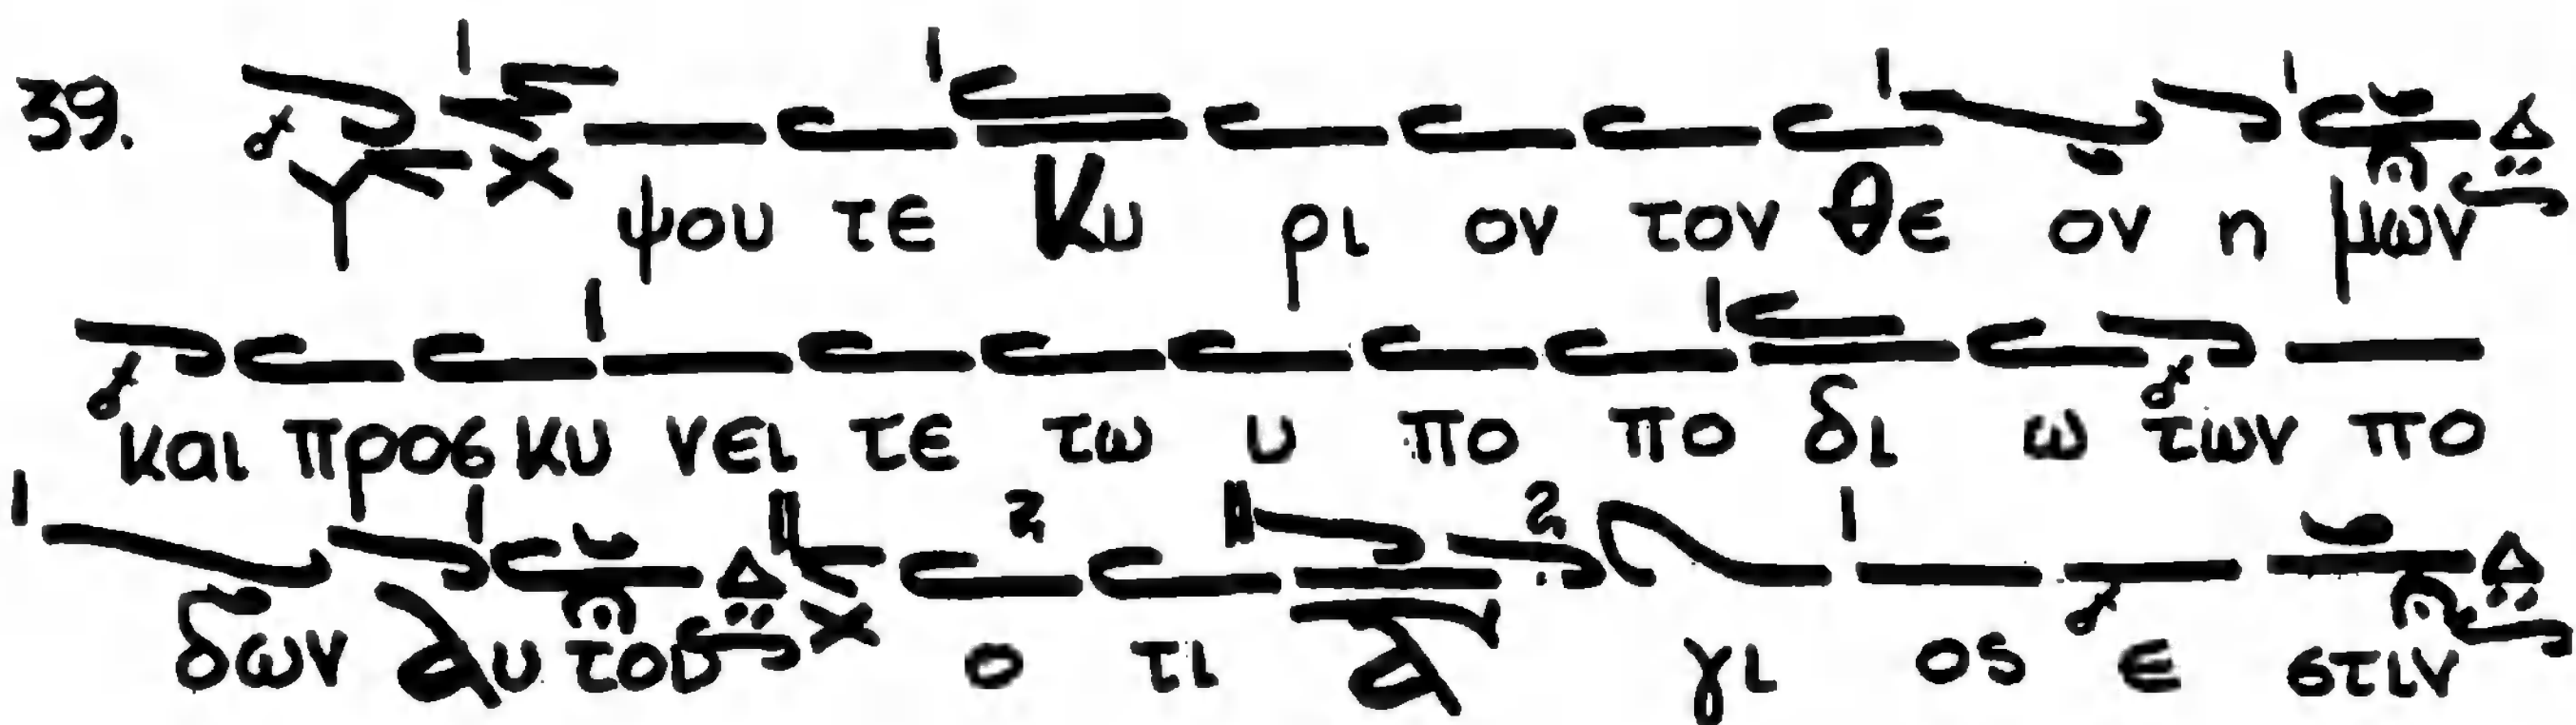 39. Υ ψου τε Κυ ρι ον τον θε ον η μων
και προς κυ νει τε τω υ πο πο δι ω των πο
δων αυ του ο τι α γι ος ε στιν